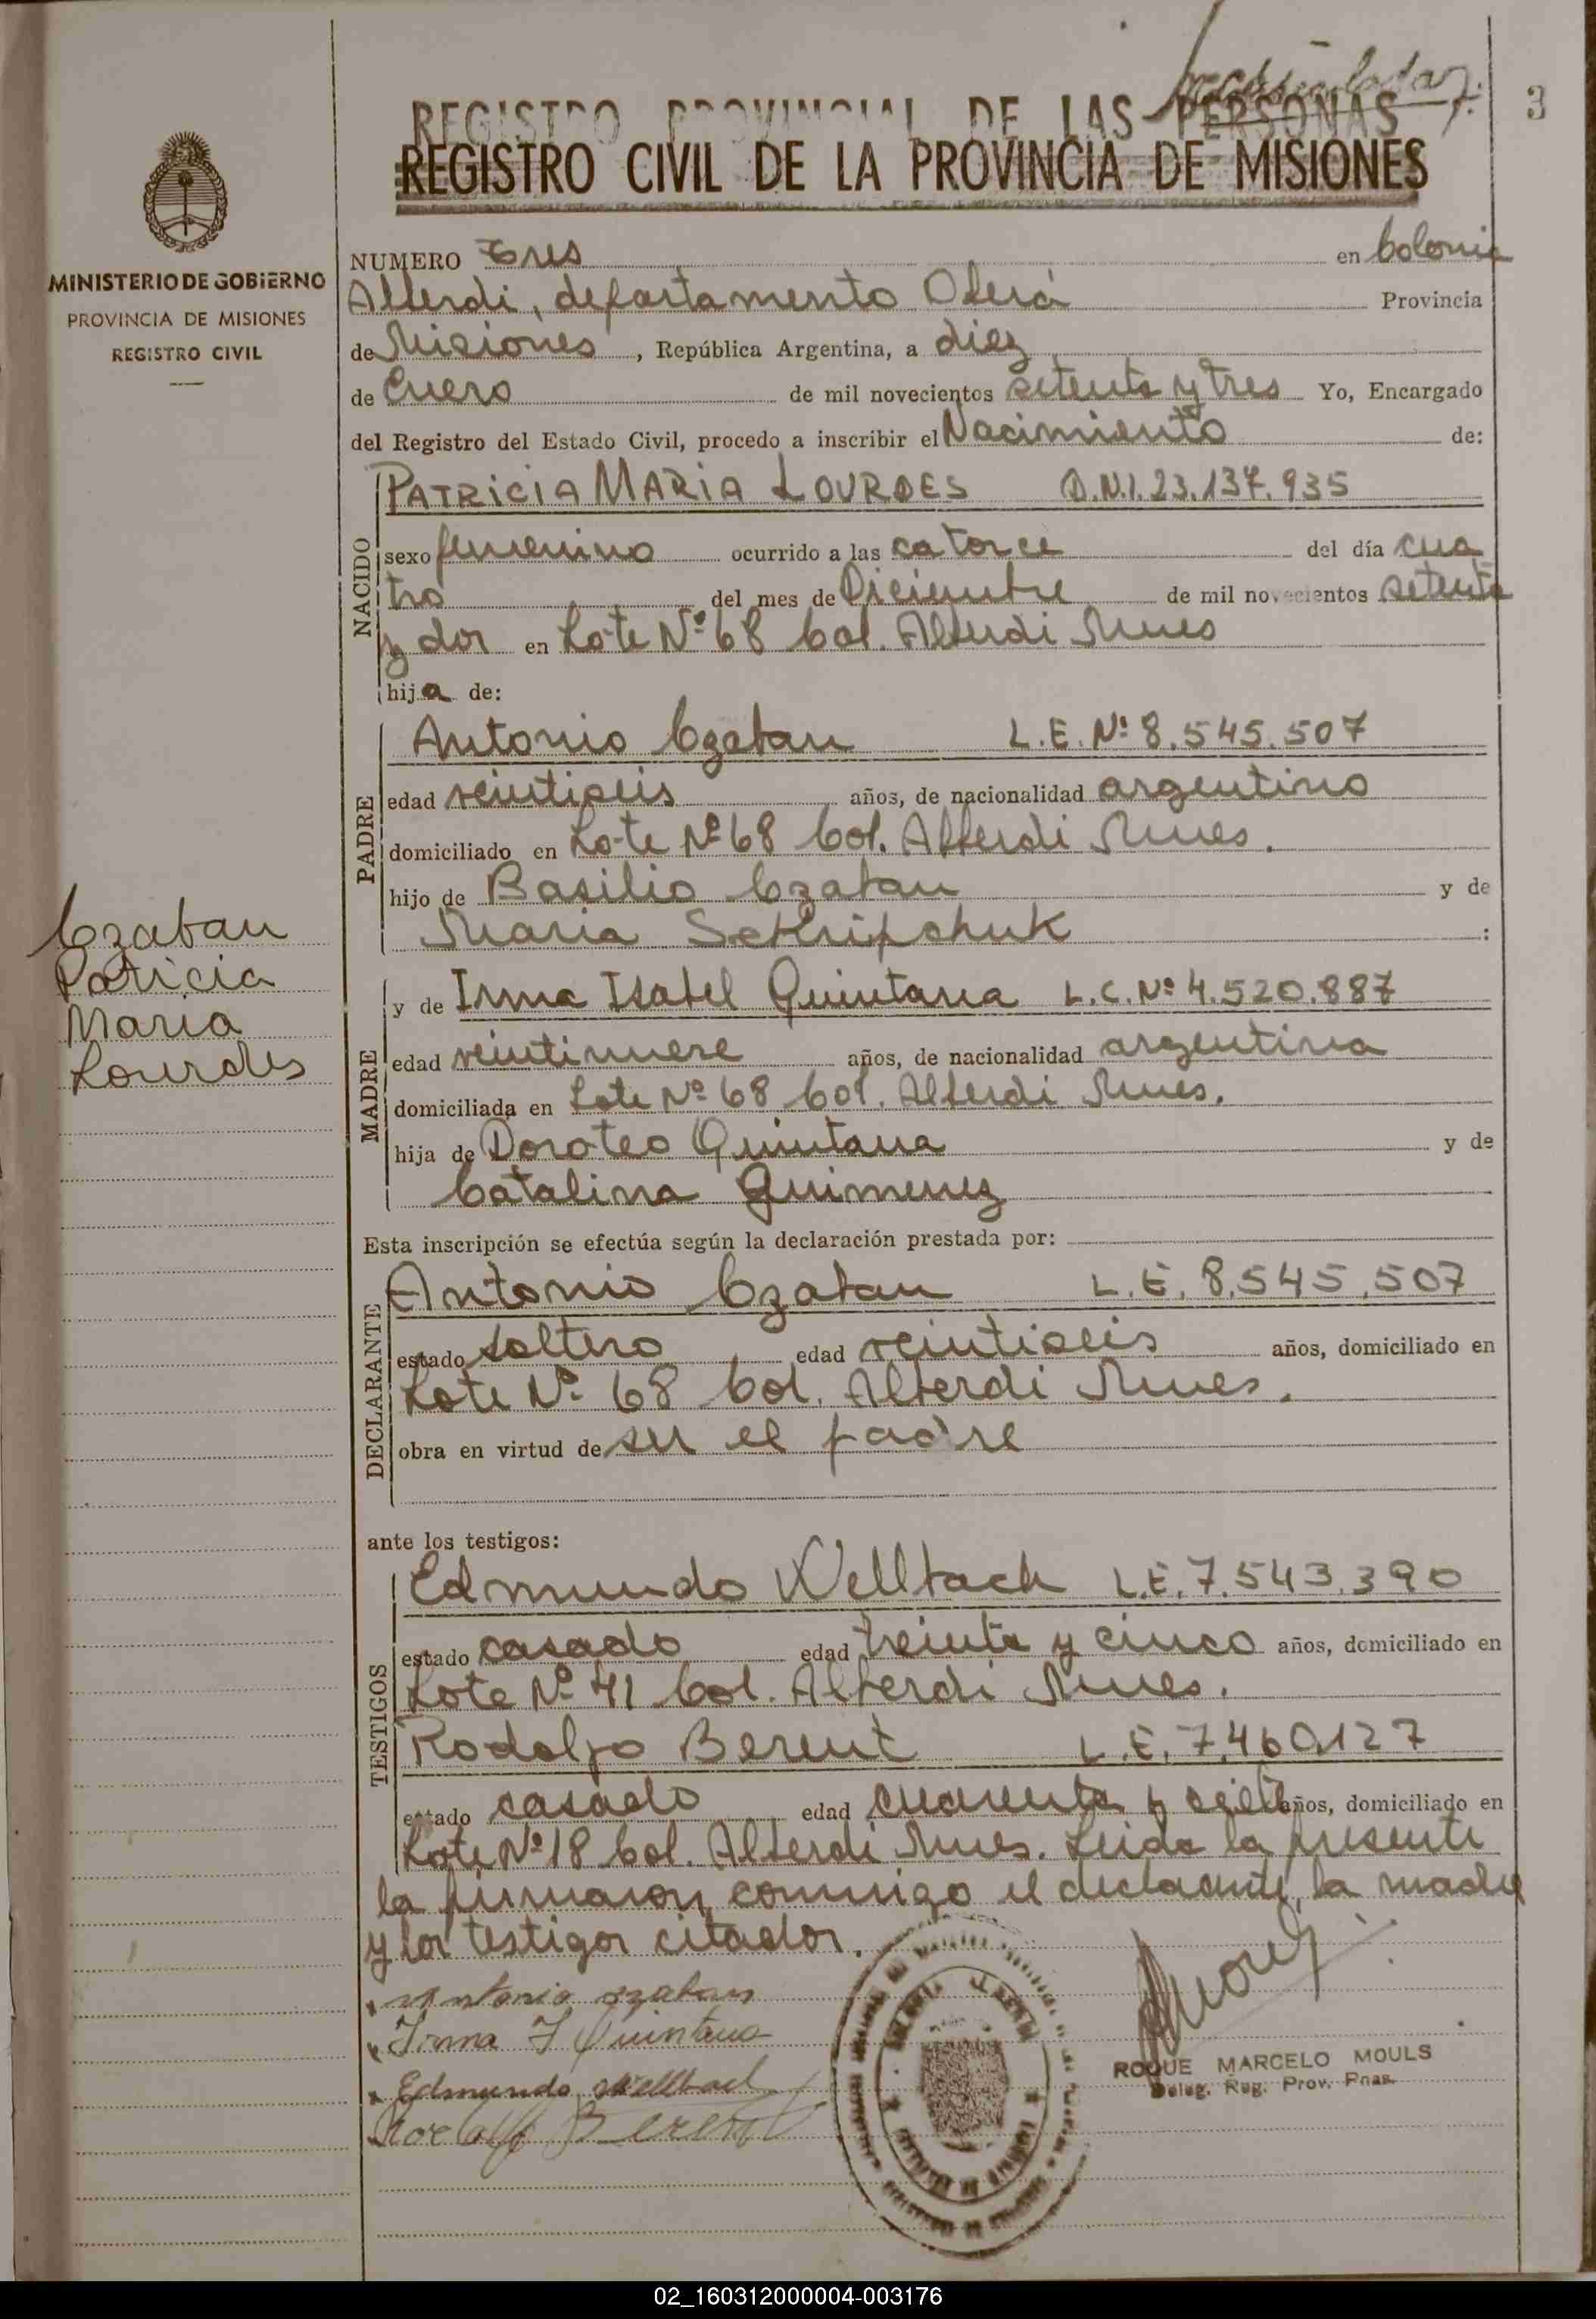 3
REGISTRO PROVINCIAL DE LAS PERSONAS
REGISTRO CIVIL DE LA PROVINCIA DE MISIONES
MINISTERIO DE GOBIERNO
PROVINCIA DE MISIONES
REGISTRO CIVIL
NUMERO Tres en Colonia
Alberdi, departamento Oberá Provincia
de Misiones, República Argentina, a diez
de Enero de mil novecientos setenta y tres Yo, Encargado
del Registro del Estado Civil, procedo a inscribir el Nacimiento de:
NACIDO
PATRICIA MARIA LOURDES D.N.I. 23.137.935
sexo femenino ocurrido a las catorce del día cua
tro del mes de Diciembre de mil novecientos setenta
y dos en Lote Nº 68 Col. Alberdi Mnes
hija de:
PADRE
Antonio Czaban L.E. Nº 8.545.507
edad veintiseis años, de nacionalidad argentino
domiciliado en Lote Nº 68 Col. Alberdi Mnes.
hijo de Basilio Czaban y de
Maria Sckripchuk :
Czaban
Patricia
Maria
Lourdes
MADRE
y de Irma Isabel Quintana L.C. Nº 4.520.887
edad veintinueve años, de nacionalidad argentina
domiciliada en Lote Nº 68 Col. Alberdi Mnes.
hija de Doroteo Quintana y de
Catalina Guimenez
Esta inscripción se efectúa según la declaración prestada por:
DECLARANTE
Antonio Czaban L.E. 8.545.507
estado soltero edad veintiseis años, domiciliado en
Lote Nº 68 Col. Alberdi Mnes.
obra en virtud de ser el padre
ante los testigos:
TESTIGOS
Edmundo Wellbach L.E. 7.543.390
estado casado edad treinta y cinco años, domiciliado en
Lote Nº 41 Col. Alberdi Mnes.
Rodolfo Berent L.E. 7.460.127
estado casado edad cuarenta y siete años, domiciliado en
Lote Nº 18 Col. Alberdi Mnes. Leida la presente
la firmaron conmigo el declarante, la madre
y los testigos citados.
Antonio czaban
Irma I Quintana
Edmundo Wellbach
Rodolfo Berent
ROQUE MARCELO MOULS
Deleg. Reg. Prov. Pnas.
02_160312000004-003176